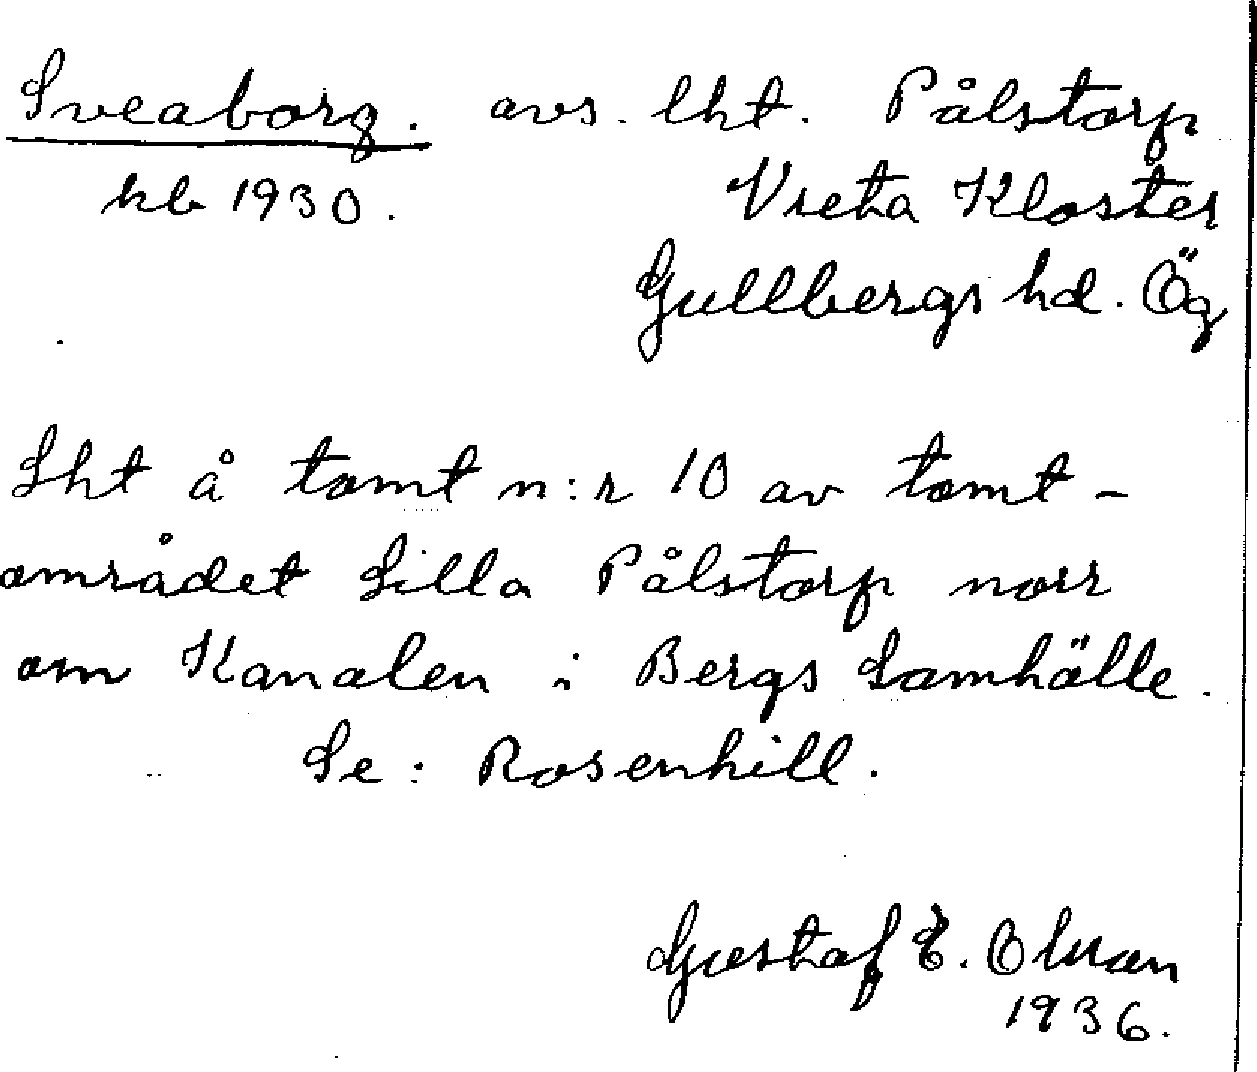 Sveaborg. avs. lht. Pålstorp
kb 1930. Vreta Kloster
Gullbergs hd. Ög
Lht å tomt n:r 10 av tomt-
området Lilla Pålstorp norr
om Kanalen i Bergs Samhälle.
Se: Rosenhill.
Gustaf E. Olsson
1936.